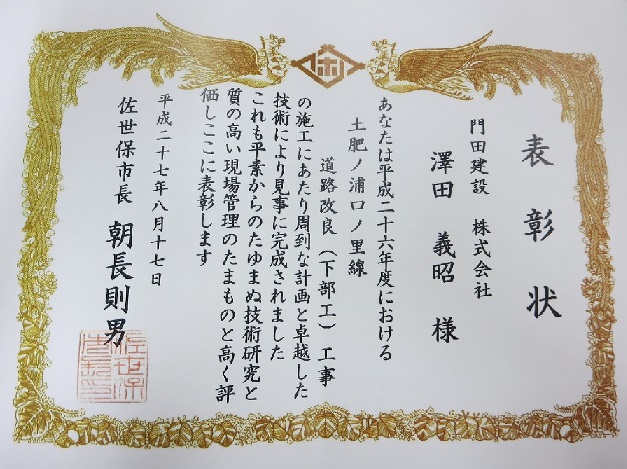 表彰状
門田建設 株式会社
澤田 義昭 様
あなたは平成二十六年度における
土肥ノ浦口ノ里線
道路改良（下部工）工事
の施工にあたり周到な計画と卓越した
技術により見事に完成されました
これも平素からのたゆまぬ技術研究と
質の高い現場管理のたまものと高く評
価しここに表彰します
平成二十七年八月十七日
佐世保市長 朝長則男
佐世保
市長之印